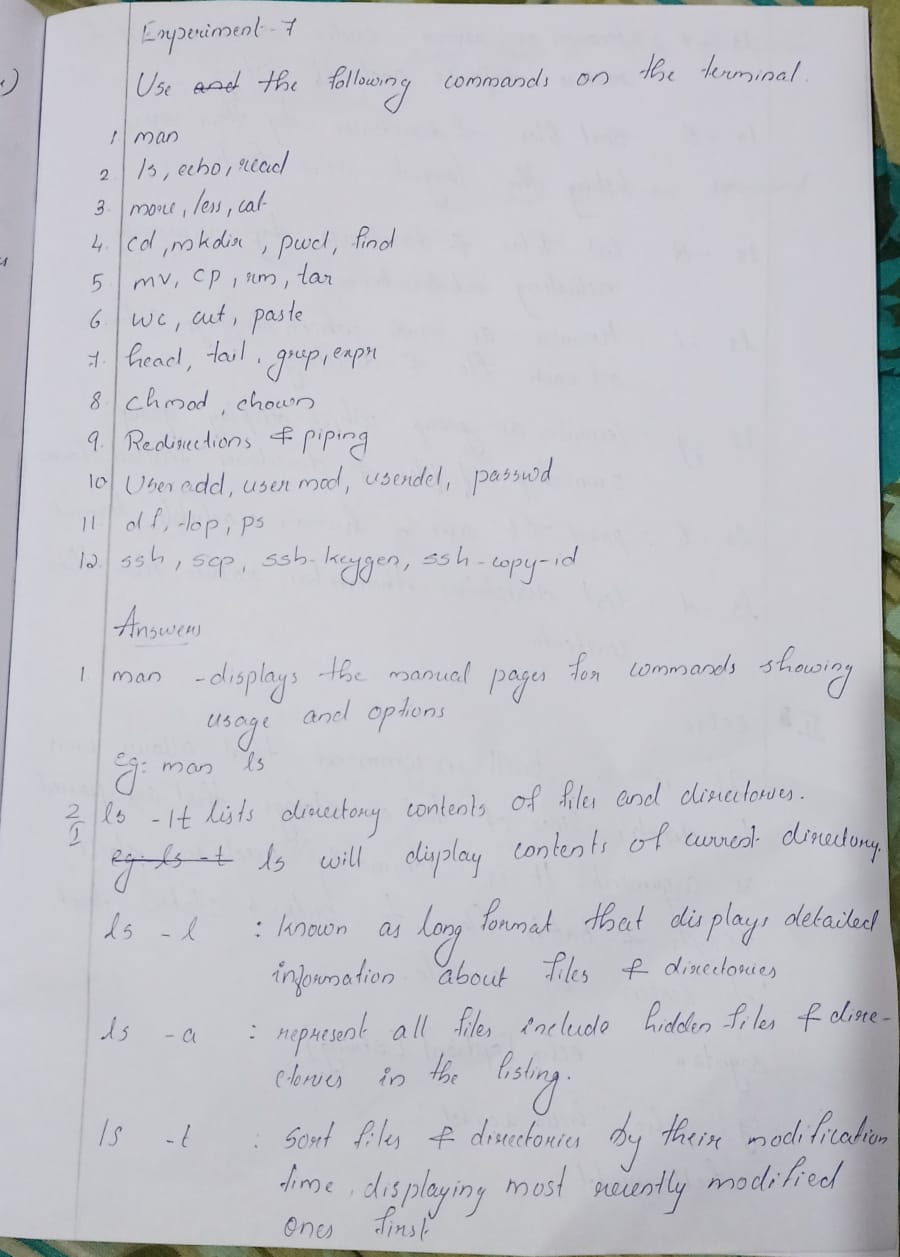 Experiment-7
Use and the following commands on the terminal.
1 man
2 ls, echo, read
3. more, less, cat
4. cd, mkdir, pwd, find
5. mv, cp, rm, tar
6. wc, cut, paste
7. head, tail, grep, expr
8. chmod, chown
9. Redirections & piping
10 User add, user mod, userdel, passwd
11 df, top, ps
12. ssh, scp, ssh-keygen, ssh-copy-id
Answers
1. man - displays the manual pages for commands showing
usage and options
eg: man ls
2/I ls - It lists directory contents of files and directories.
eg: ls -t ls will display contents of current directory.
ls -l : known as long format that displays detailed
information about files & directories
ls -a : represent all files include hidden files & dire-
ctories in the listing.
ls -t : Sort files & directories by their modification
time, displaying most recently modified
ones first